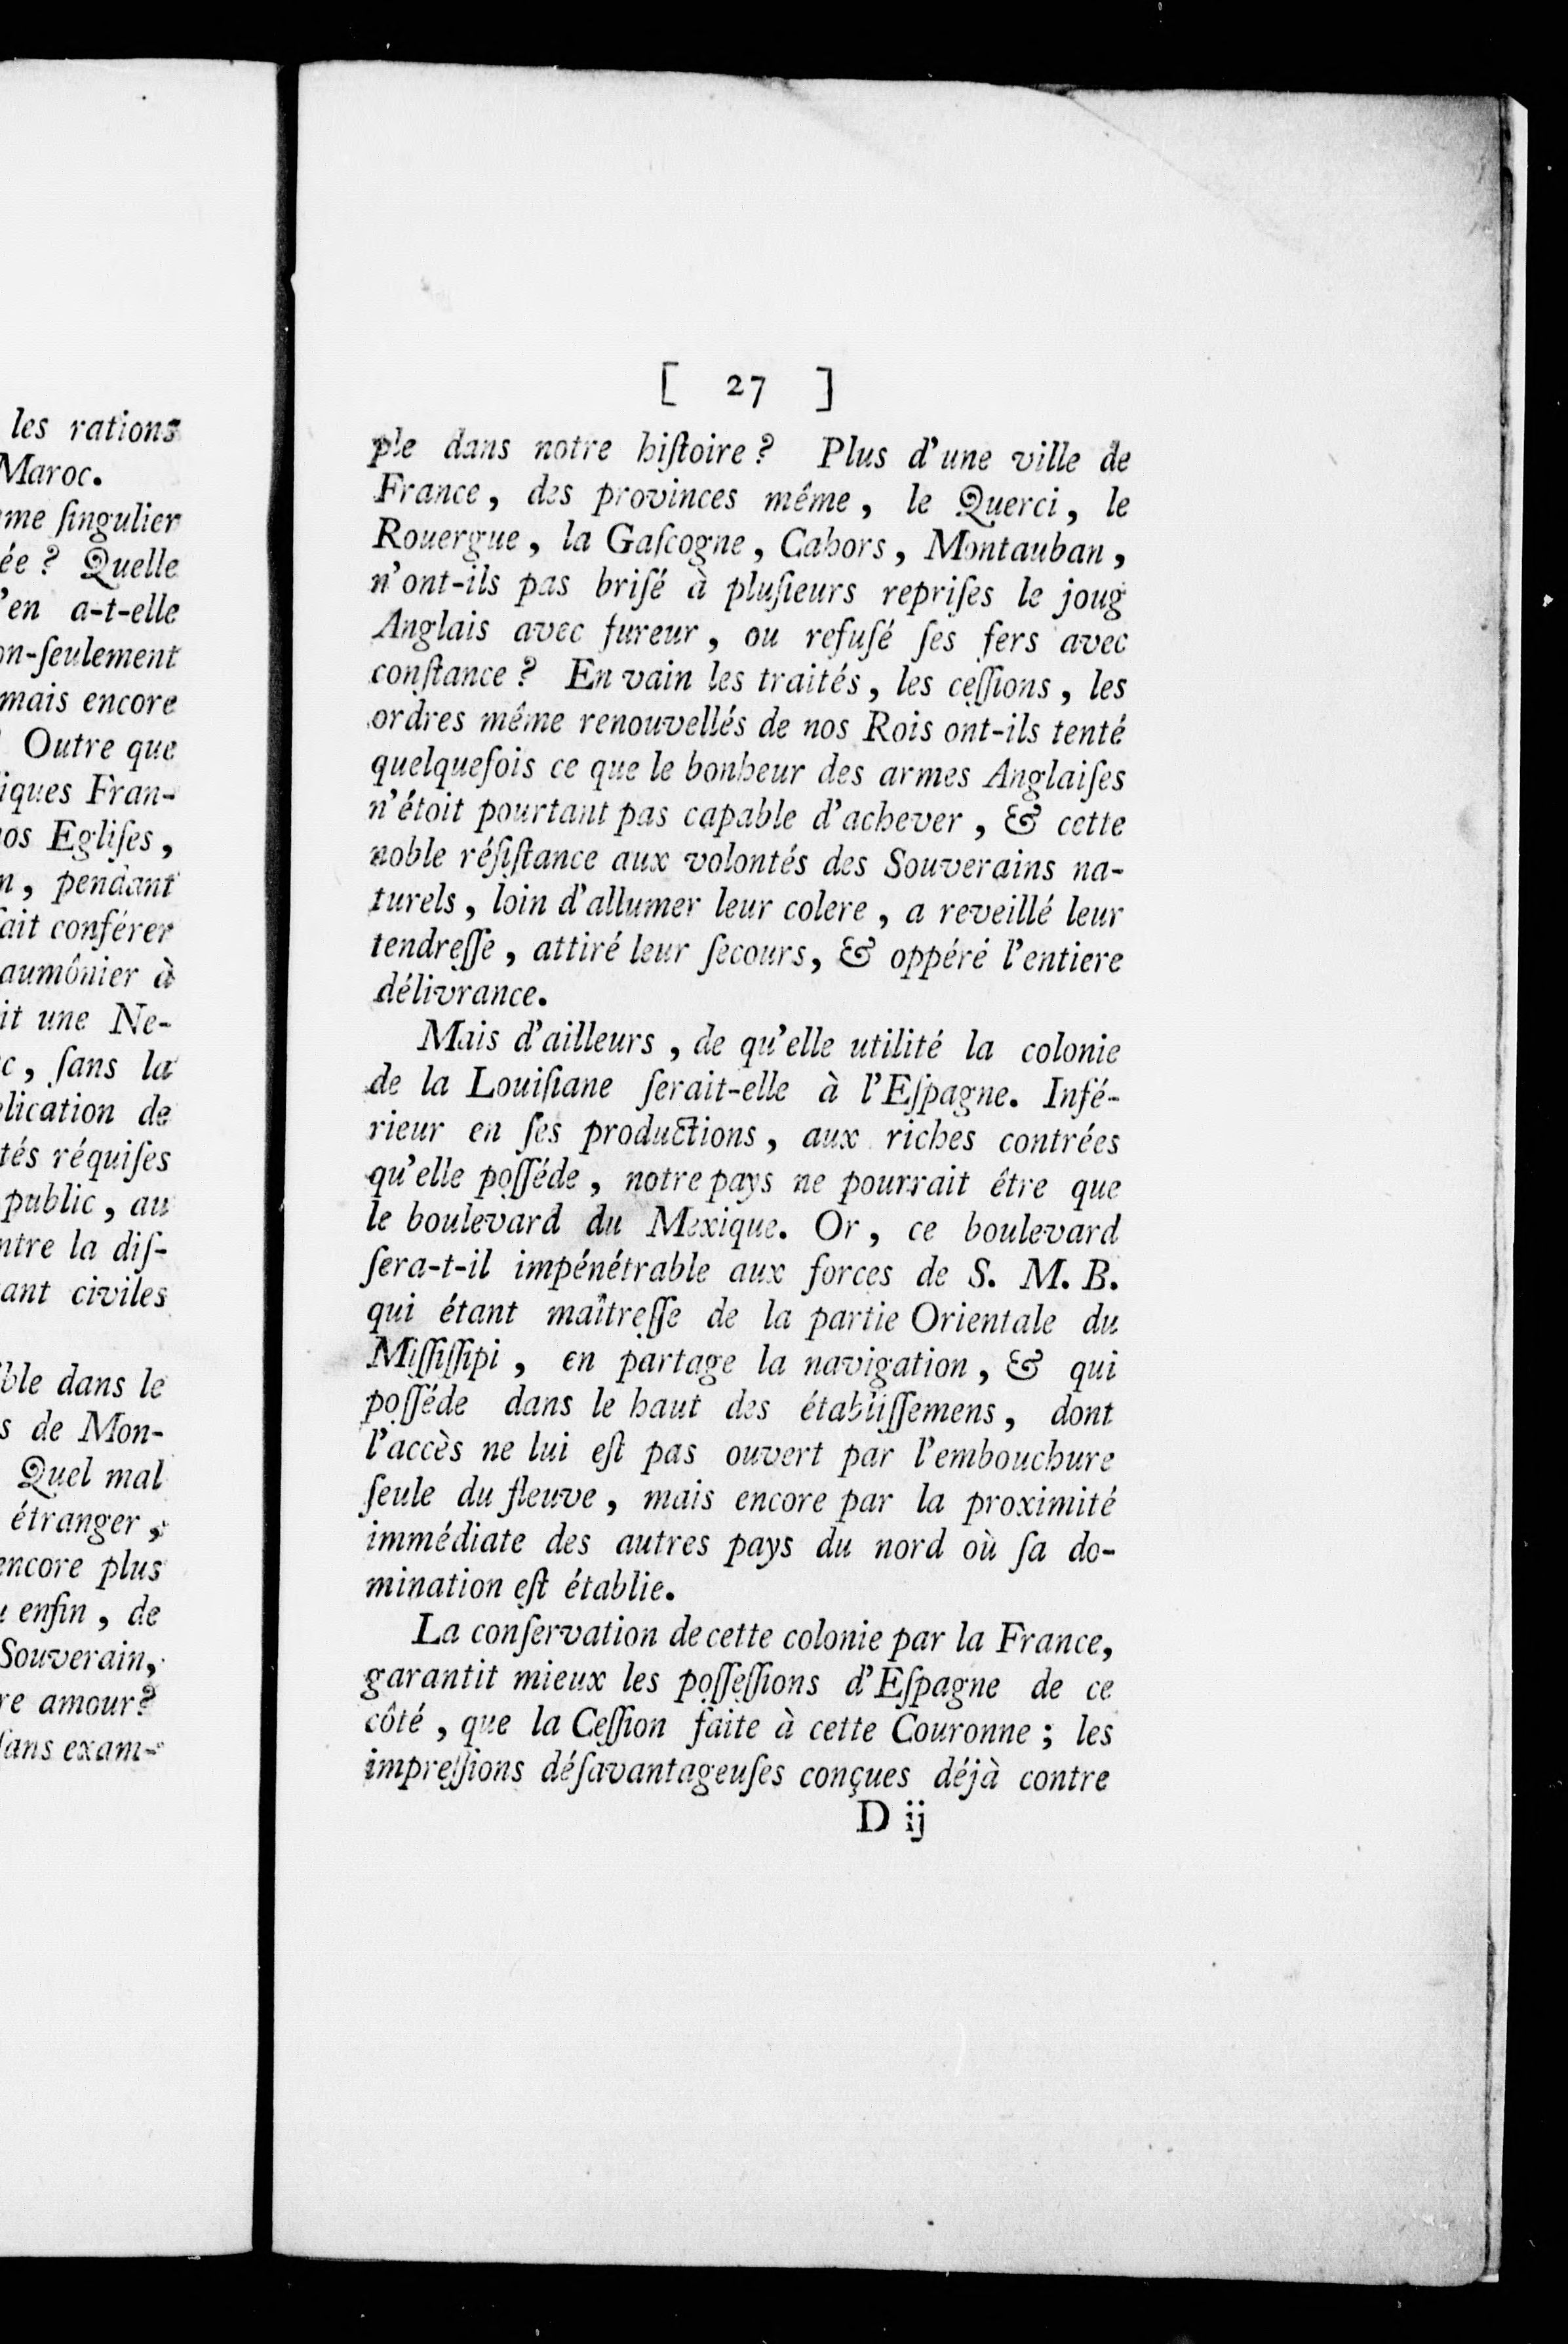 les rations
Maroc.
me ſingulier
ée ? Quelle
'en a-t-elle
on-ſeulement
mais encore
Outre que
iques Fran-
os Egliſes ,
n , pendant
ait conférer
aumônier à
it une Ne-
c , ſans la
lication de
tés réquiſes
public , au
ntre la diſ-
ant civiles
ble dans le
s de Mon-
Quel mal
étranger ,
encore plus
enfin , de
Souverain,
re amour ?
ſans exam-
[ 27 ]
ple dans notre hiſtoire ? Plus d'une ville de
France , des provinces même , le Querci , le
Rouergue , la Gaſcogne , Cahors , Montauban ,
n'ont-ils pas briſé à pluſieurs repriſes le joug
Anglais avec fureur , ou refuſé ſes fers avec
conſtance ? En vain les traités , les ceſſions , les
ordres même renouvellés de nos Rois ont-ils tenté
quelquefois ce que le bonheur des armes Anglaiſes
n'étoit pourtant pas capable d'achever , & cette
noble réſiſtance aux volontés des Souverains na-
turels , loin d'allumer leur colere , a reveillé leur
tendreſſe , attiré leur ſecours , & oppéré l'entiere
délivrance.
Mais d'ailleurs , de qu'elle utilité la colonie
de la Louiſiane ſerait-elle à l'Eſpagne. Infé-
rieur en ſes productions , aux riches contrées
qu'elle poſſéde , notre pays ne pourrait être que
le boulevard du Mexique. Or , ce boulevard
ſera-t-il impénétrable aux forces de S. M. B.
qui étant maîtreſſe de la partie Orientale du
Miſſiſſipi , en partage la navigation , & qui
poſſéde dans le haut des établiſſemens , dont
l'accès ne lui eſt pas ouvert par l'embouchure
ſeule du fleuve , mais encore par la proximité
immédiate des autres pays du nord où ſa do-
mination eſt établie.
La conſervation de cette colonie par la France,
garantit mieux les poſſeſſions d'Eſpagne de ce
côté , que la Ceſſion faite à cette Couronne ; les
impreſſions déſavantageuſes conçues déjà contre
D ij